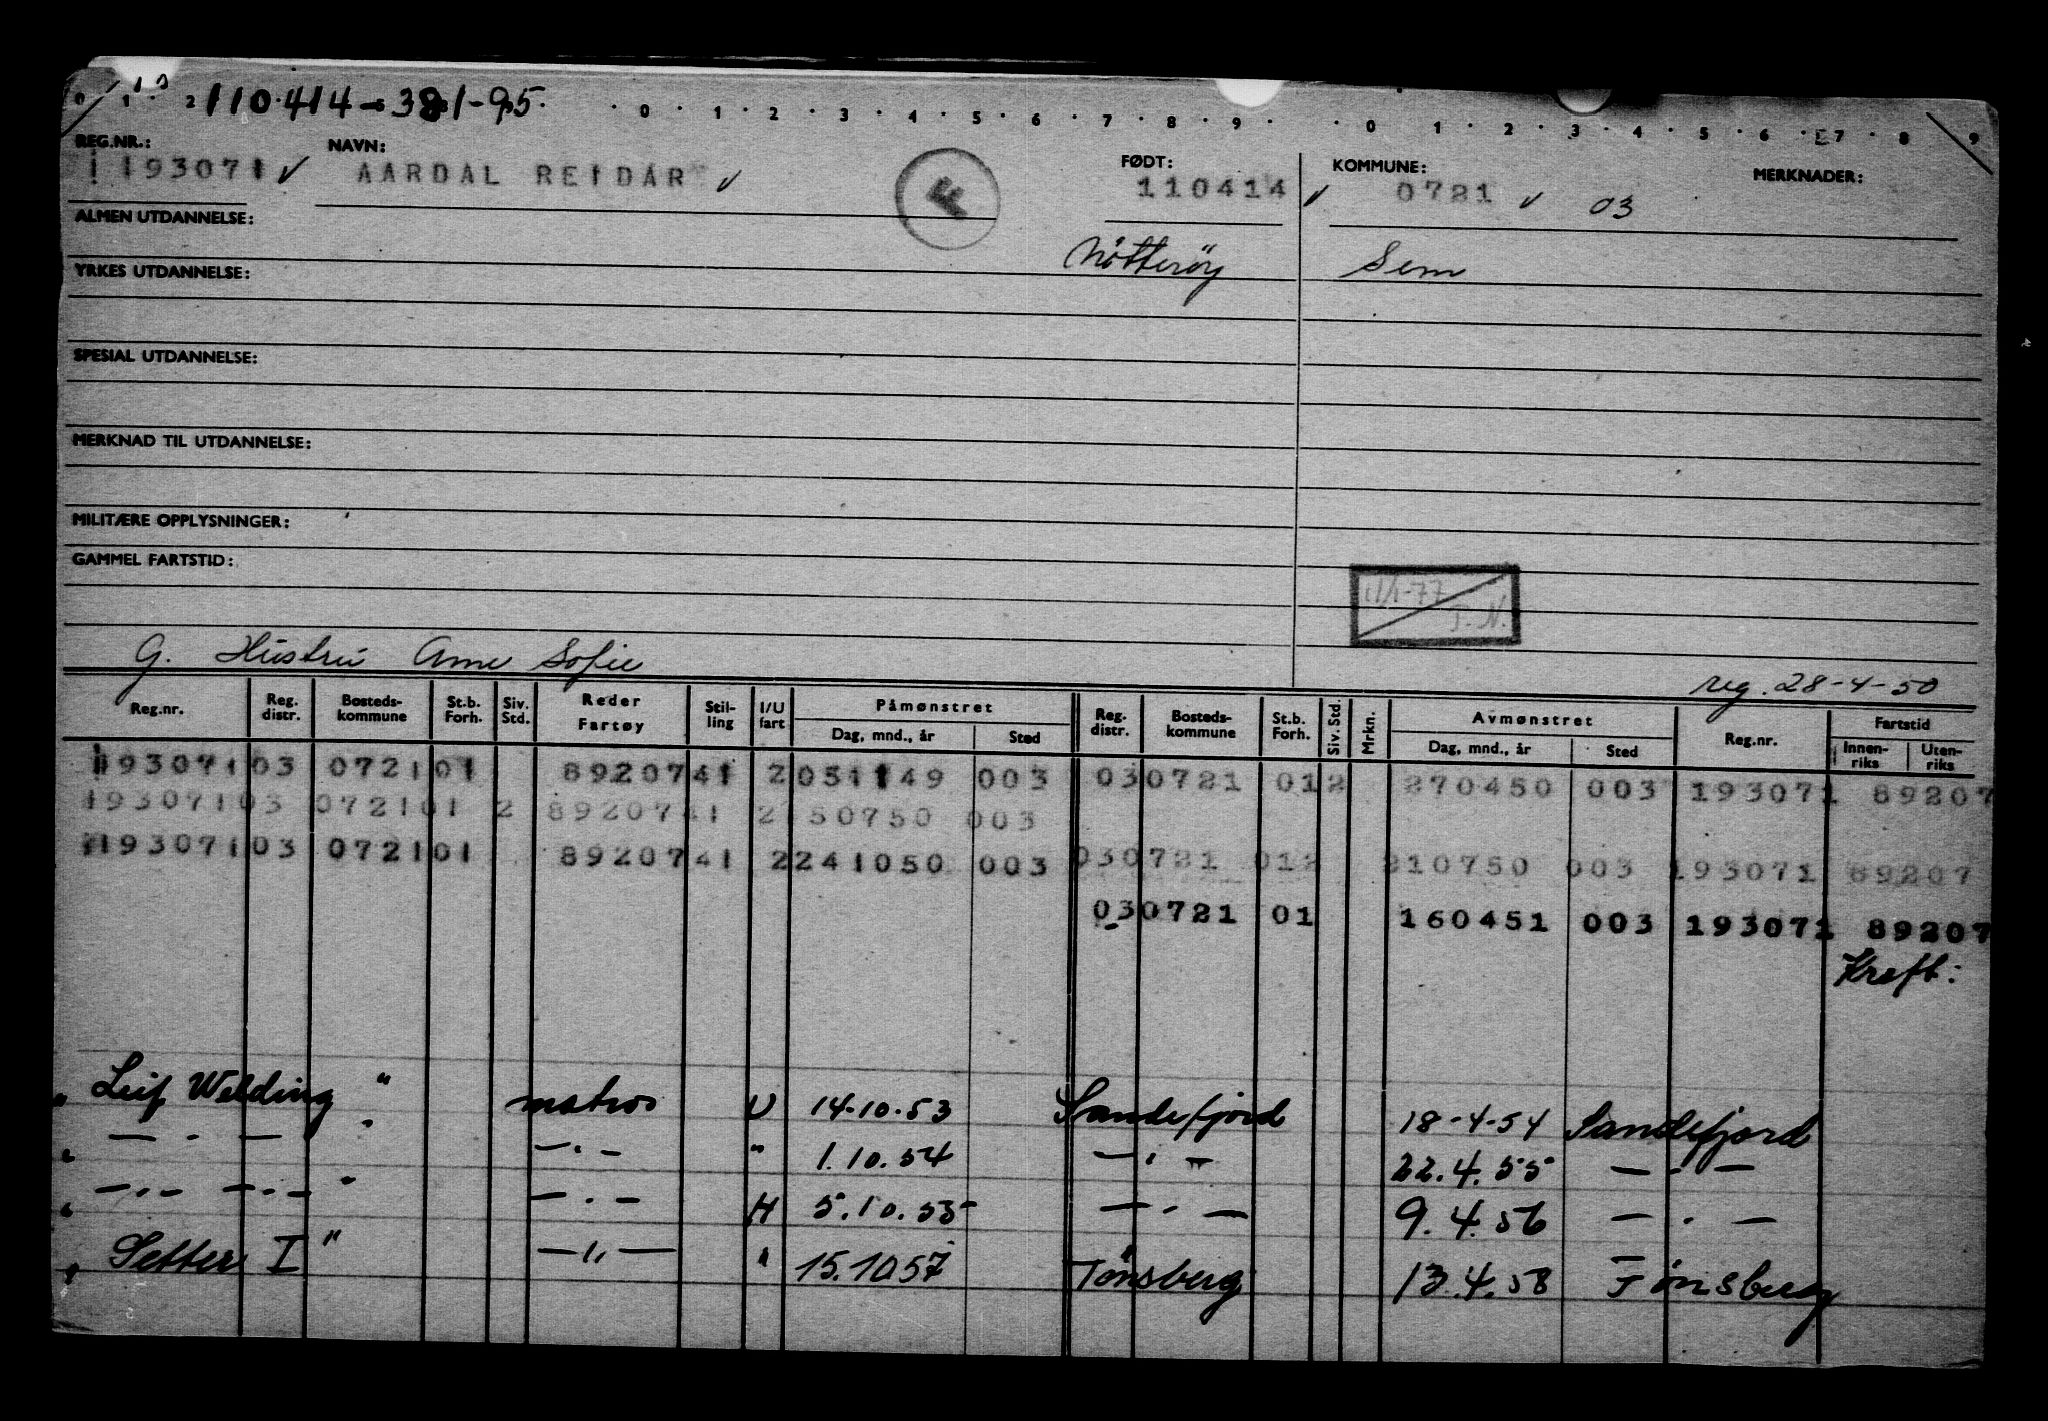 110.414-381-95.
0 1 2 0 1 2 3 4 5 6 7 8 9 0 1 2 3 4 5 6 7 8 9
REG.NR.: NAVN: FØDT: KOMMUNE: MERKNADER:
193071 ✓ AARDAL REIDAR ✓ F 110414 ✓ 0721 ✓ 03
ALMEN UTDANNELSE:
Nötteröy Sem
YRKES UTDANNELSE:
SPESIAL UTDANNELSE:
MERKNAD TIL UTDANNELSE:
MILITÆRE OPPLYSNINGER:
GAMMEL FARTSTID:
11/1-77
T.N.
G. Hustru Anne Sofie
reg. 28-4-50
Reg.nr. Reg. distr. Bosteds-kommune St.b. Forh. Siv. Std. Reder Fartøy Stil-ling I/U fart Påmønstret Dag, mnd., år Sted Reg. distr. Bosteds-kommune St.b. Forh. Siv. Std. Mrkn. Avmønstret Dag, mnd., år Sted Reg.nr. Fartstid Innen-riks Uten-riks
193071 03 0721 01 89207 41 2 051149 003 03 0721 01 2 270450 003 193071 89207
193071 03 0721 01 2 89207 41 2 150750 003
193071 03 0721 01 89207 41 2 241050 003 03 0721 01 2 210750 003 193071 89207
03 0721 01 160451 003 193071 89207
Kreft:
Leif Welding " matros U 14.10.53 Sandefjord 18-4-54 Sandefjord
— " — " — " — " 1.10.54 — " — 22.4.55 — " —
— " — — " — " — " — H 5.10.55 — " — 9.4.56 — " —
Setter I " — " — " 15.10.57 Tønsberg 13.4.58 Tønsberg